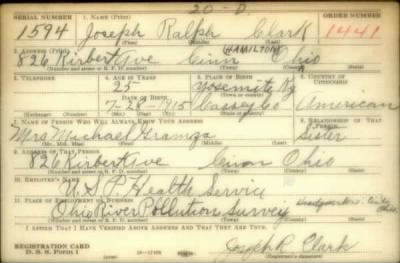 20-D
SERIAL NUMBER 1. NAME (Print) ORDER NUMBER
1594 Joseph Ralph Clark 1441
(First) (Middle) (Last)
3. ADDRESS (Print) HAMILTON
826 Kirbert Ave Cinn Ohio
(Number and street or R. F. D. number) (Town) (County) (State)
3. TELEPHONE 4. AGE IN YEARS 5. PLACE OF BIRTH 6. COUNTRY OF CITIZENSHIP
25 Yosemite Ky
DATE OF BIRTH
7-28-1915 Casey Co American
7. NAME OF PERSON WHO WILL ALWAYS KNOW YOUR ADDRESS 8. RELATIONSHIP OF THAT PERSON
Mrs Michael Gramza Sister
(Mr., Mrs., Miss) (First) (Middle) (Last)
9. ADDRESS OF THAT PERSON
826 Kirbert Ave Cinn Ohio
(Number and street or R. F. D. number) (Town) (County) (State)
10. EMPLOYER'S NAME
U S P Health Service
11. PLACE OF EMPLOYMENT OR BUSINESS
Ohio River Pollution Survey Headquarters Ohio
(Number and street or R. F. D. number) (Town) (County) (State)
I AFFIRM THAT I HAVE VERIFIED ABOVE ANSWERS AND THAT THEY ARE TRUE.
REGISTRATION CARD
D. S. S. Form 1 Joseph R Clark